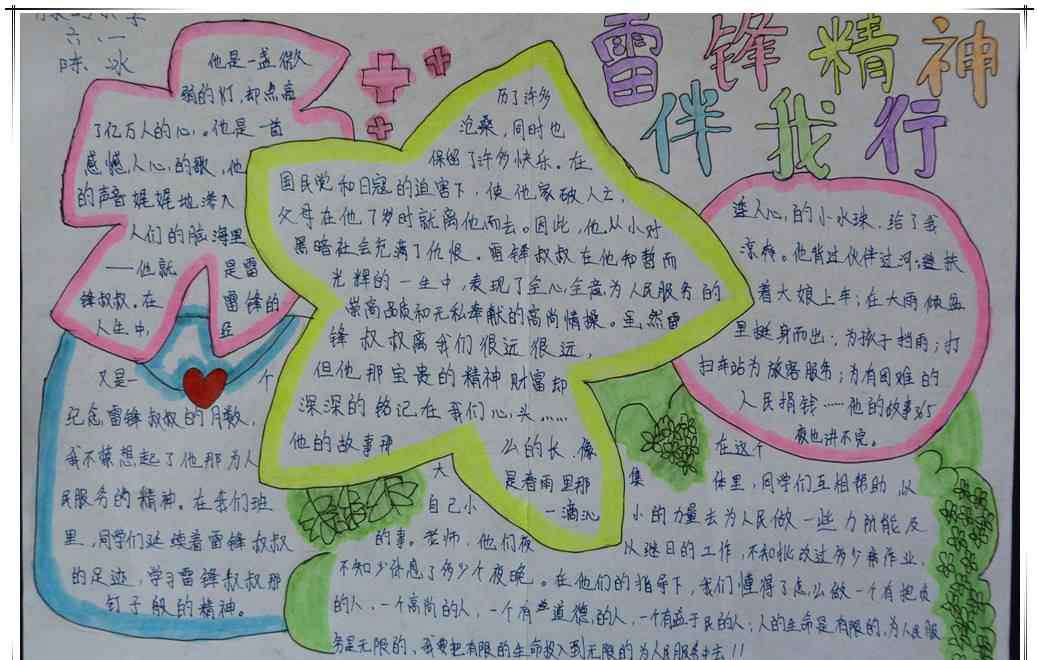 雷锋精神
伴我行
六、一
陈冰
他是一盏微
弱的灯,却点亮
了亿万人的心。他是一首
感憾人心的歌,他
的声音娓娓地潜入
人们的脑海里
——他就是雷
锋叔叔。在雷锋的
人生中,
历了许多
沧桑,同时也
保留了许多快乐。在
国民党和日冠的迫害下,使他家破人亡,
父母在他7岁时就离他而去。因此,他从小对
黑暗社会充满了仇恨。雷锋叔叔在他和暂而
光辉的一生中,表现了全心全意为人民服务的
崇高品质和无私奉献的高尚情操。虽然雷
锋叔叔离我们很远很远,
但他那宝贵的精神财富却
深深的铭记在我们心头……
他的故事那么的长,像
是春雨里那
一滴沁
连人心的小水珠,给了我
凉爽。他背过伙伴过河;搀扶
着大娘上车;在大雨倾盆
里挺身而出,为孩子挡雨;打
扫车站为旅客服务;为有困难的
人民捐钱……他的故事365
夜也讲不完。
又是一个
纪念雷锋叔叔的月数,
我不禁想起了他那为人
民服务的精神。在我们班
里,同学们延续着雷锋叔叔
的足迹,学习雷锋叔叔那
钉子般的精神。
在这个
大集体里,同学们互相帮助,以
自己小小的力量去为人民做一些力所能及
的事。老师,他们夜以继日的工作,不知批改过多少条作业,
不知少休息了多少个夜晚。在他们的指导下,我们懂得了怎么做一个有
的人,一个高尚的人,一个有道德的人,一个有益于民的人;人的生命是有限的,为人民服
务是无限的,我要把有限的生命投入到无限的为人民服务中去!!